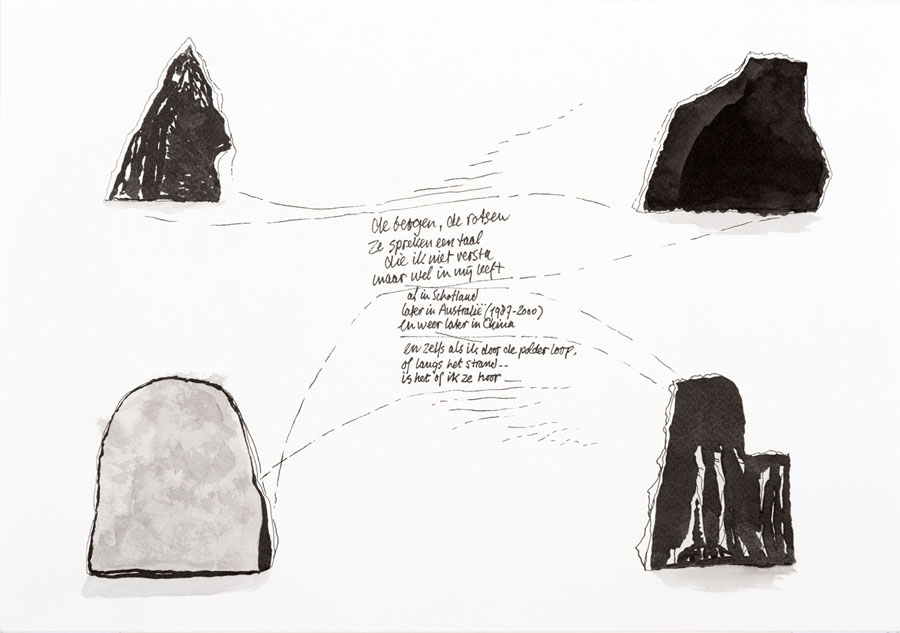 de bergen, de rotsen
ze spreken een taal
die ik niet versta
maar wel in mij leeft
al in Schotland
later in Australië (1987-2000)
en weer later in China
en zelfs als ik door de polder loop,
of langs het strand--
is het of ik ze hoor